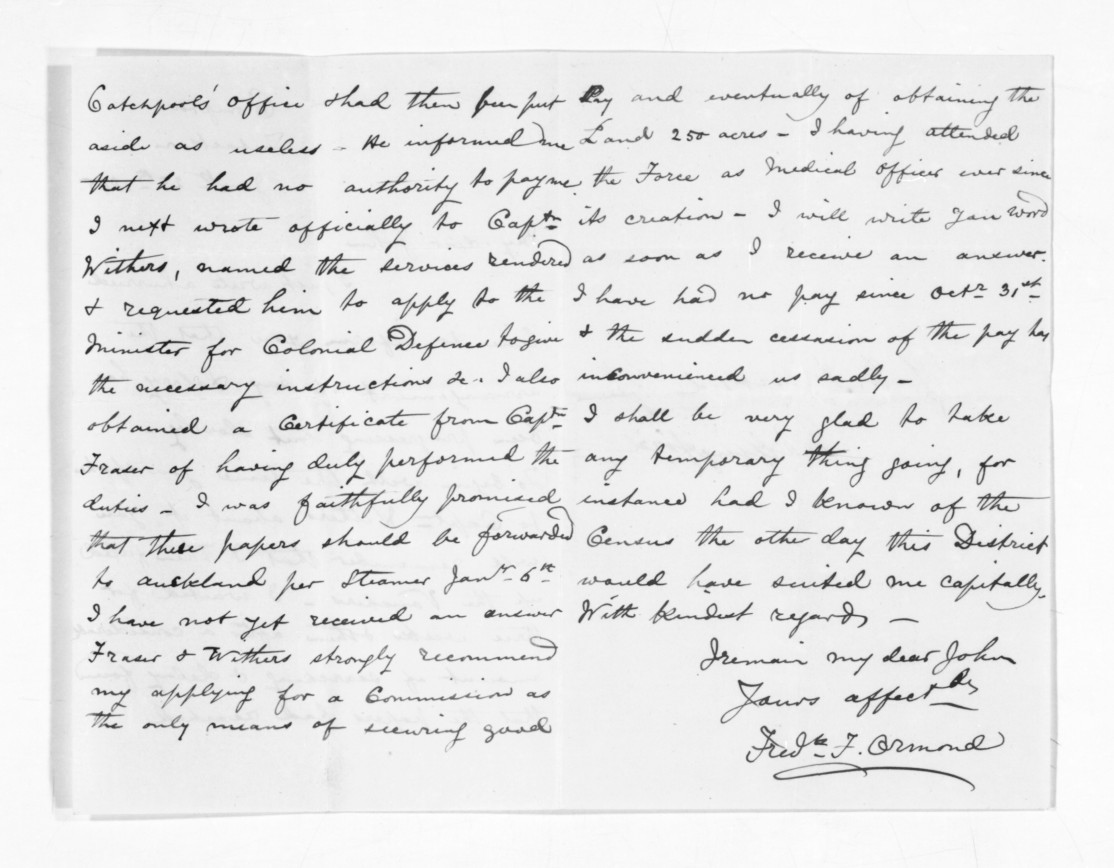 Catchpool's office & had then been put
aside as useless - He informed me
that he had no authority to pay me.
I next wrote officially to Captn
Withers, named the services rendered
& requested him to apply to the
Minister for Colonial Defence to give
the necessary instructions &c. I also
obtained a Certificate from Captn
Fraser of having duly performed the
duties - I was faithfully promised
that these papers should be forwarded
to Auckland per Steamer Jany 6th
I have not yet received an answer
Fraser & Withers strongly recommend
my applying for a Commission as
the only means of securing good
Pay and eventually of obtaining the
Land 250 acres - I having attended
the Force as Medical Officer ever since
its creation - I will write you word
as soon as I receive an answer.
I have had no pay since Octr 31st
& the sudden cessasion of the pay has
inconvenienced us sadly -
I shall be very glad to take
any temporary thing going, for
instance had I known of the
Census the other day this District
would have suited me capitally.
With kindest regards -
I remain my dear John
Yours affectly
Fredk F. Ormond